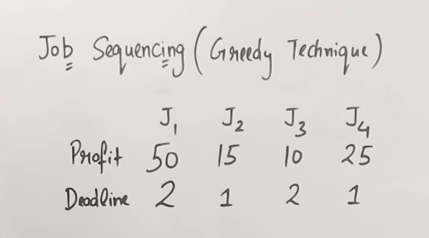 Job Sequencing (Greedy Technique)
J1 J2 J3 J4
Profit 50 15 10 25
Deadline 2 1 2 1